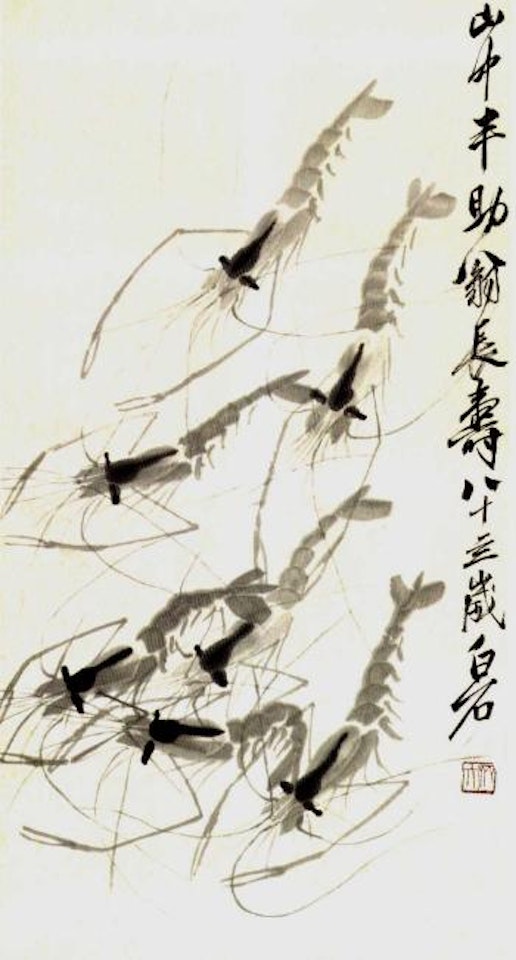 山中丰助翁長壽八十三歲白石